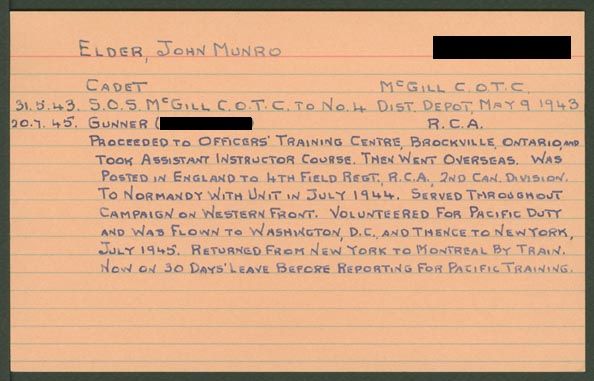 ELDER, JOHN MUNRO
CADET McGILL C.O.T.C.
31.5.43. S.O.S. McGILL C.O.T.C. TO No. 4 DIST. DEPOT, MAY 9 1943
20.7.45. GUNNER ( ) R.C.A.
PROCEEDED TO OFFICERS' TRAINING CENTRE, BROCKVILLE, ONTARIO, AND
TOOK ASSISTANT INSTRUCTOR COURSE. THEN WENT OVERSEAS. WAS
POSTED IN ENGLAND TO 4TH FIELD REGT., R.C.A., 2ND CAN. DIVISION.
TO NORMANDY WITH UNIT IN JULY 1944. SERVED THROUGHOUT
CAMPAIGN ON WESTERN FRONT. VOLUNTEERED FOR PACIFIC DUTY
AND WAS FLOWN TO WASHINGTON, D.C., AND THENCE TO NEW YORK,
JULY 1945. RETURNED FROM NEW YORK TO MONTREAL BY TRAIN.
NOW ON 30 DAYS' LEAVE BEFORE REPORTING FOR PACIFIC TRAINING.